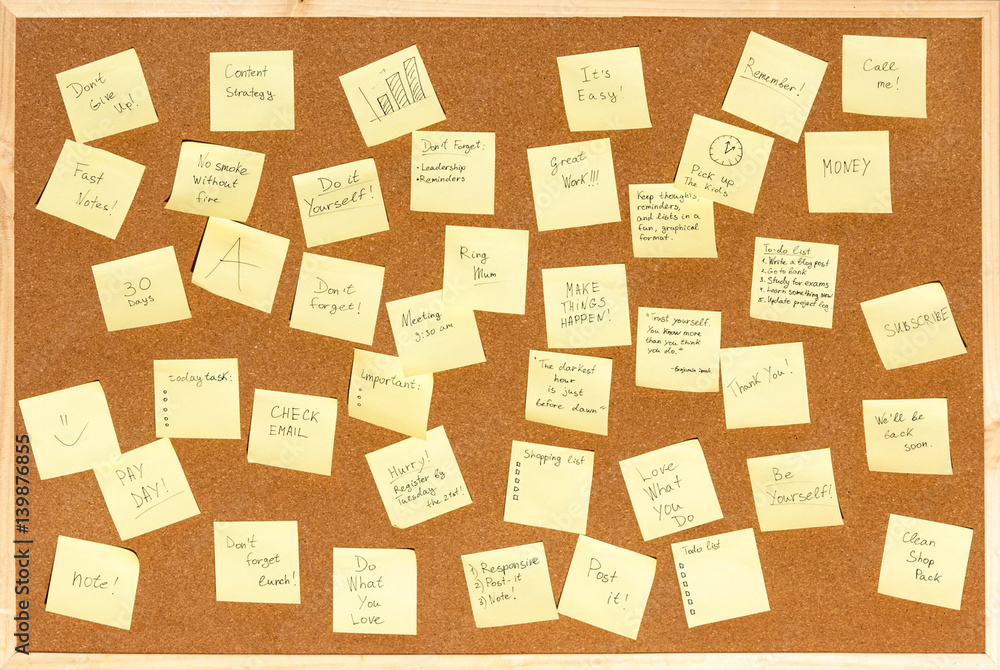 Don't
Give
Up!
Content
Strategy
It's
Easy!
Remember!
Call
me!
Fast
Notes!
No smoke
Without
fire
Do it
Yourself!
Don't Forget:
• Leadership
• Reminders
Great
Work!!!
Pick up
The Kids
MONEY
Keep thoughts,
reminders,
and lists in a
fun, graphical
format.
A
30
Days
Don't
forget!
Ring
Mum
MAKE
THINGS
HAPPEN!
To-do list
1. Write a blog post
2. Go to bank
3. Study for exams
4. Learn something new
5. Update project log
SUBSCRIBE
Meeting
9:30 am
"Trust yourself.
You know more
than you think
you do."
- Benjamin Spock
today task:
Important:
"The darkest
hour
is just
before dawn"
Thank You!
CHECK
EMAIL
We'll be
back
soon.
PAY
DAY!
Hurry!
Register by
Tuesday
the 21st!
Shopping list
Love
What
You
Do
Be
Yourself!
Note!
Don't
forget
lunch!
Do
What
You
Love
1) Responsive
2) Post-it
3) Note!
Post
it!
Todo list
Clean
Shop
Pack
Adobe Stock | #139876855
Adobe Stock